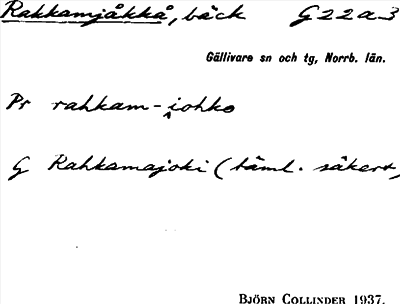 Rakkamjåkkå, bäck G22a3
Gällivare sn och tg, Norrb. län.
Pr rahkam-johko
G Rahkamajoki (täml. säkert)
BJÖRN COLLINDER 1937.